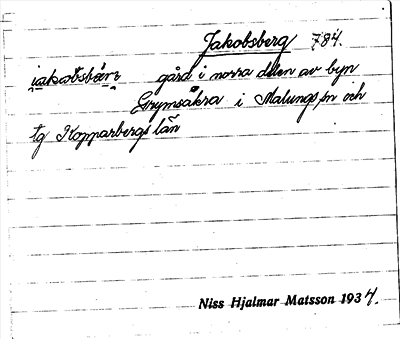 Jakobsberg 784.
jakobsbærj gård i norra delen av byn
Grymsåkra i Malungs sn och
tg Kopparbergs län
Niss Hjalmar Matsson 1934.